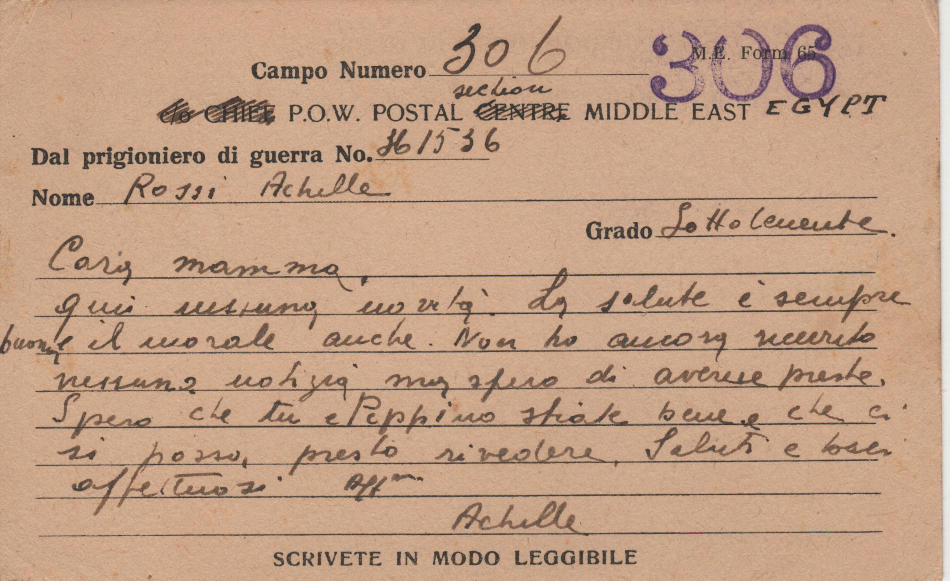 M.E. Form 65
306
Campo Numero 306
section
c/o CHIEF P.O.W. POSTAL CENTRE MIDDLE EAST EGYPT
Dal prigioniero di guerra No. 361536
Nome Rossi Achille
Grado Sottotenente.
Cara mamma,
qui nessuna novità. La salute è sempre
buona e il morale anche. Non ho ancora ricevuto
nessuna notizia ma spero di averne presto.
Spero che tu e Peppino stiate bene e che ci
si possa, presto rivedere. Saluti e baci
affettuosi Affmo
Achille
SCRIVETE IN MODO LEGGIBILE